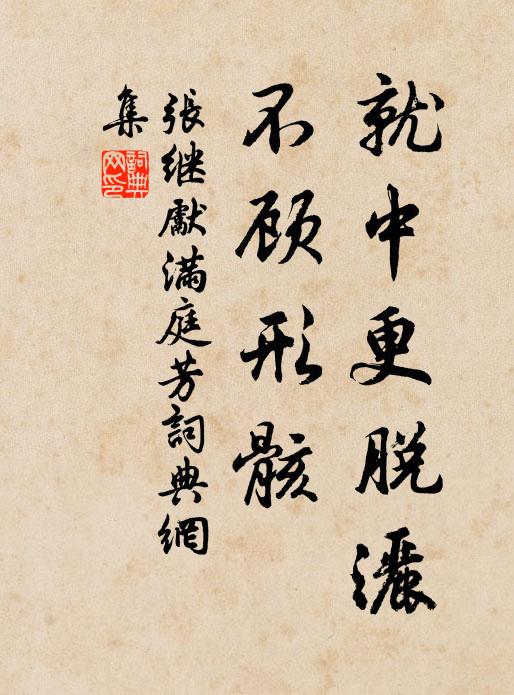 就中更脱灑
不顾形骸
張继獻滿庭芳詞典網
集
詞典
网印